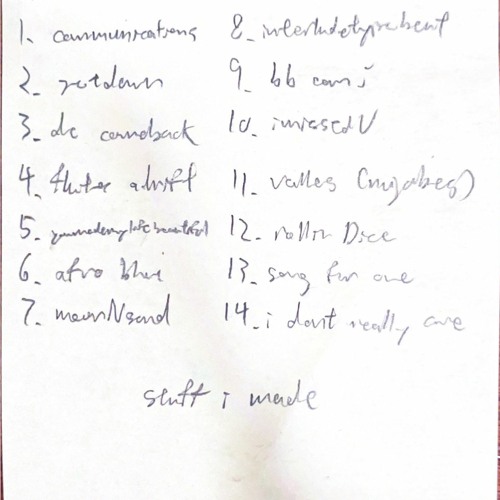 1. communications
2. getdown
3. de comeback
4. flutee adrift
5. youmademylifebeautiful
6. afro blue
7. moonNsand
8. interludetypebeat
9. bb com i
10. imissedU
11. valles (nujabes)
12. rollin Dice
13. song for one
14. i dont really care
stuff i made